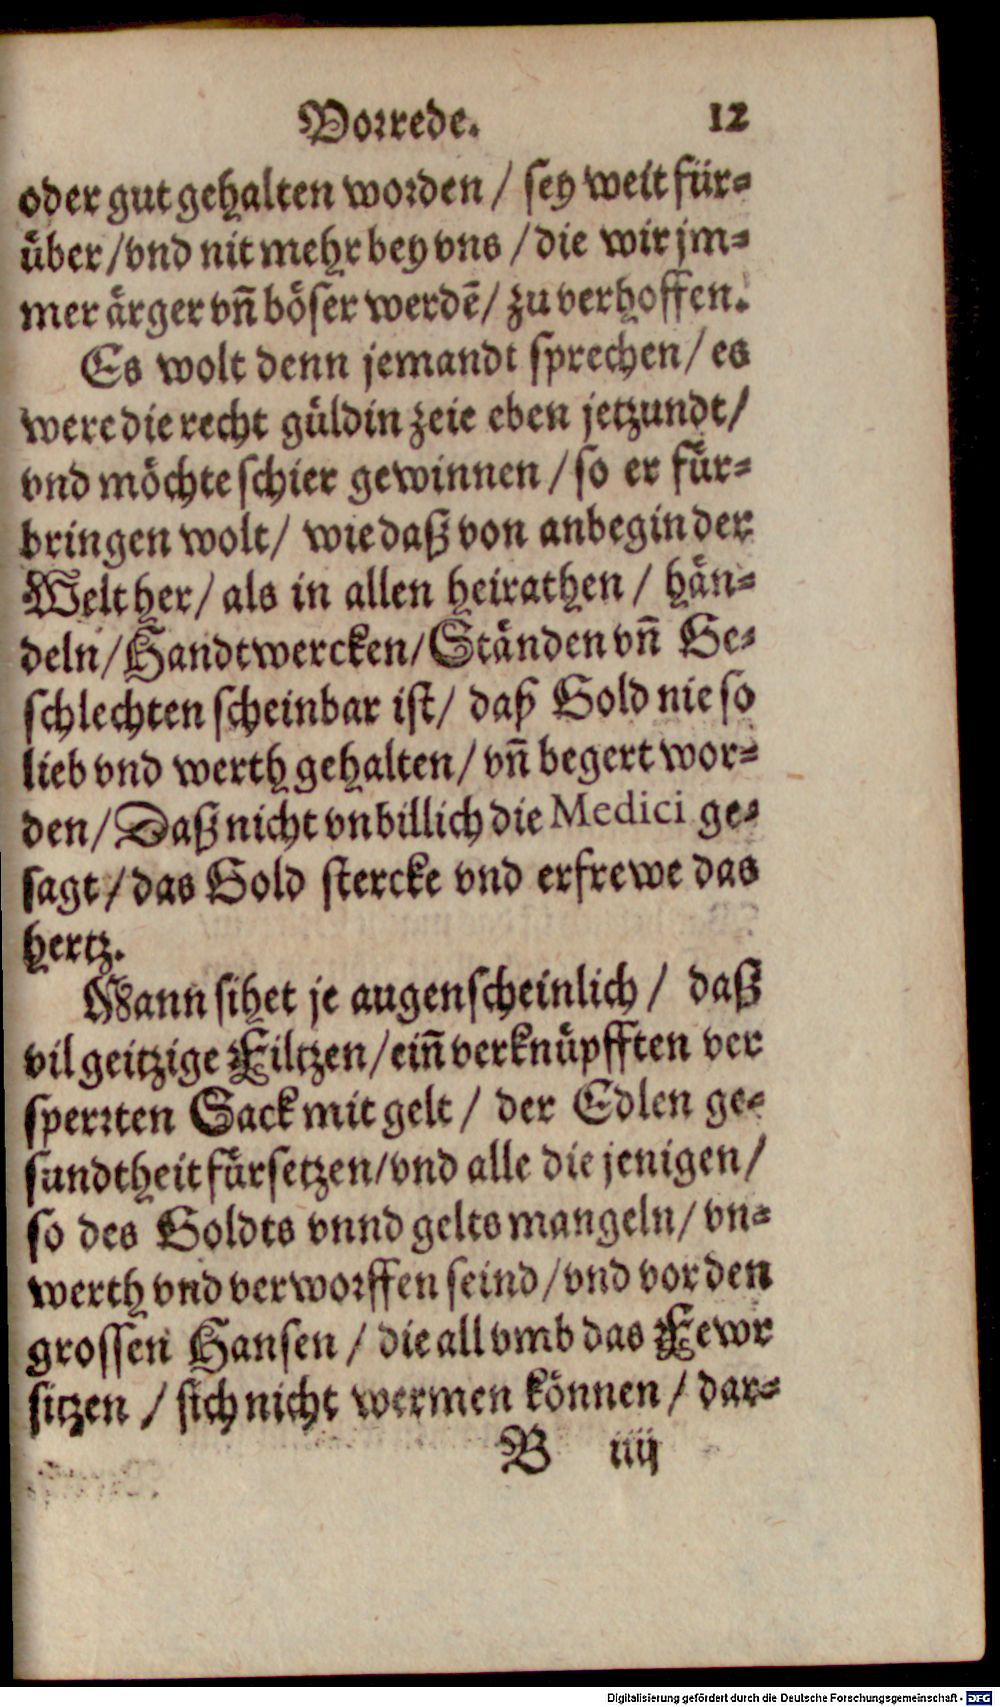 Vorrede. 12
oder gut gehalten worden / sey weit für-
über / vnd nit mehr bey vns / die wir jm-
mer ärger vñ böser werdē / zu verhoffen.
Es wolt denn jemandt sprechen / es
were die recht güldin zeie eben jetzundt /
vnd möchte schier gewinnen / so er für-
bringen wolt / wie daß von anbegin der
Welt her / als in allen heirathen / hän-
deln / Handtwercken / Ständen vñ Ge-
schlechten scheinbar ist / daß Gold nie so
lieb vnd werth gehalten / vñ begert wor-
den / Daß nicht vnbillich die Medici ge-
sagt / das Gold stercke vnd erfrewe das
hertz.
Mann sihet je augenscheinlich / daß
vil geitzige Filtzen / eiñ verknüpfften ver
sperrten Sack mit gelt / der Edlen ge-
sundtheit fürsetzen / vnd alle die jenigen /
so des Goldts vnnd gelts mangeln / vn-
werth vnd verworffen seind / vnd vor den
grossen Hansen / die all vmb das Fewr
sitzen / sich nicht wermen können / dar-
B iiij
Digitalisierung gefördert durch die Deutsche Forschungsgemeinschaft - DFG